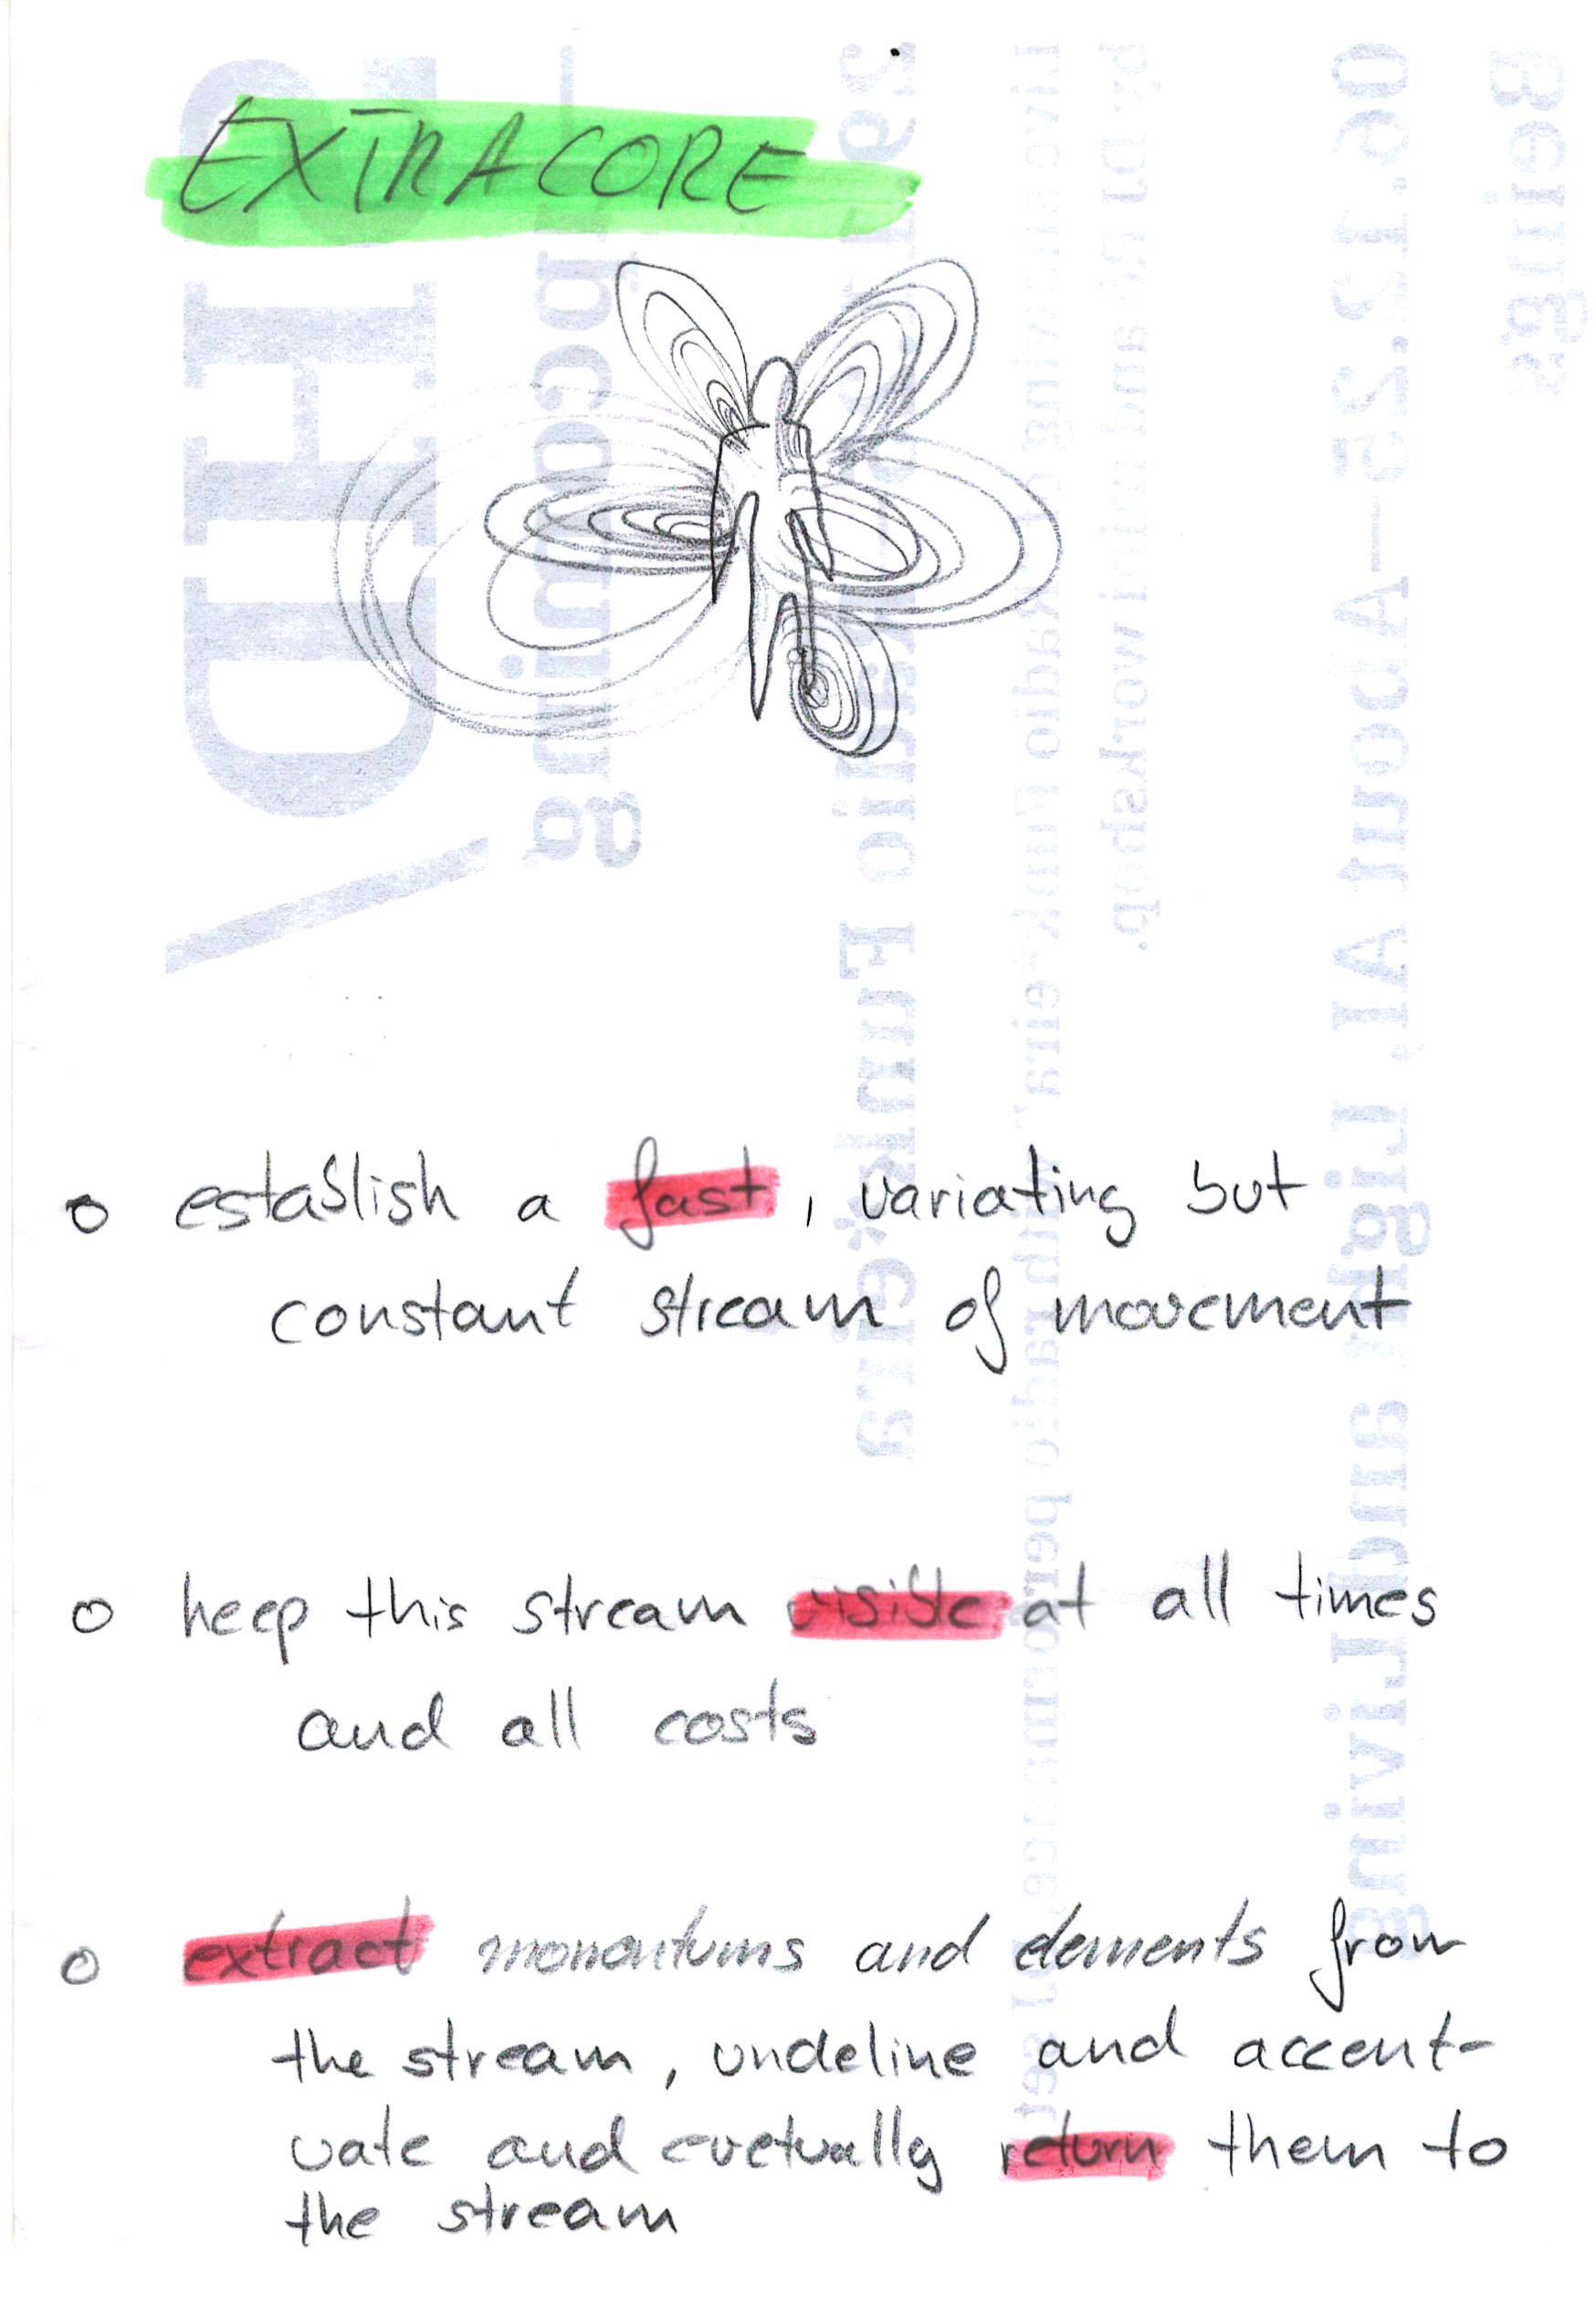 EXTRACORE
o establish a fast, variating but
constant stream of movement
o keep this stream visible at all times
and all costs
o extract momentums and elements from
the stream, undeline and accent-
uate and evetually return them to
the stream
Upcoming
06.12.25—About AI, Light and Living
Beings